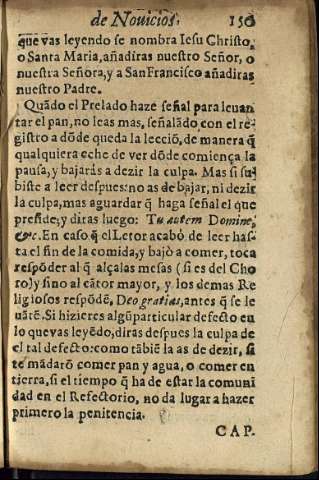 de Novicios. 150
que vas leyendo se nombra Iesu Christo,
o Santa Maria, añadiras nuestro Señor, o
nuestra Señora, y a San Francisco añadiras
nuestro Padre.
Quãdo el Prelado haze señal para leuan
tar el pan, no leas mas, señalãdo con el re-
gistro a dõde queda la lecciõ, de manera q̃
qualquiera eche de ver dõde comiença la
pausa, y bajarás a dezir la culpa. Mas si su-
biste a leer despues: no as de bajar, ni dezir
la culpa, mas aguardar q̃ haga señal el que
preside; y diras luego: Tu autem Domine,
&c. En caso q̃ el Letor acabó de leer has-
ta el fin de la comida, y bajò a comer, toca
respõder al q̃ alçalas mesas (si es del Cho
ro) y sino al cãtor mayor, y los demas Re
ligiosos respõdẽ, Deo gratias, antes q̃ se le
uãtẽ. Si hizieres algũ particular defecto en
lo que vas leyẽdo, diras despues la culpa de
el tal defecto: como tãbiẽ la as de dezir, si
te mãdarõ comer pan y agua, o comer en
tierra, si el tiempo q̃ ha de estar la comuni
dad en el Refectorio, no da lugar a hazer
primero la penitencia.
CAP.